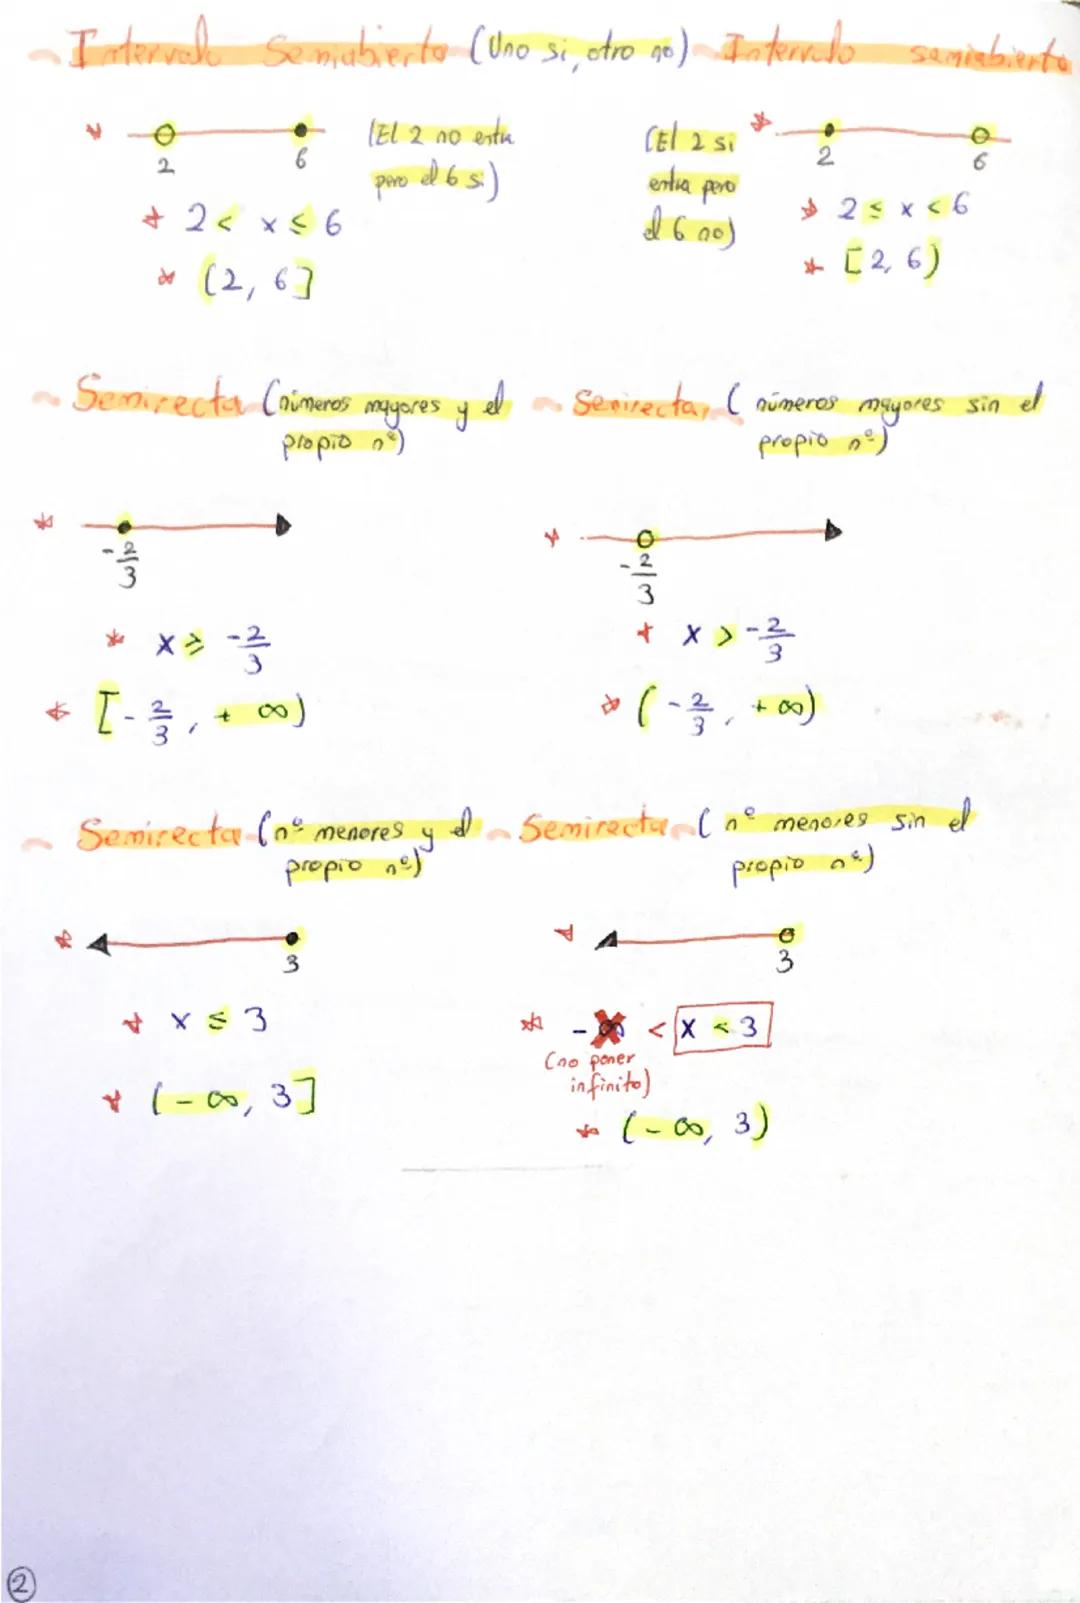 Intervalo Semiabierto (Uno si, otro no)
2 6
(El 2 no entra
pero el 6 si)
2 < x ≤ 6
(2, 6]
Intervalo semiabierto
(El 2 si
entra pero
el 6 no)
2 6
2 ≤ x < 6
[2, 6)
Semirecta (números mayores y el
propio nº)
-2/3
x ≥ -2/3
[-2/3, +∞)
Semirecta (números mayores sin el
propio nº)
-2/3
x > -2/3
(-2/3, +∞)
Semirecta (nº menores y el
propio nº)
3
x ≤ 3
(-∞, 3]
Semirecta (nº menores sin el
propio nº)
3
-∞ < x < 3
(no poner
infinito)
(-∞, 3)
2